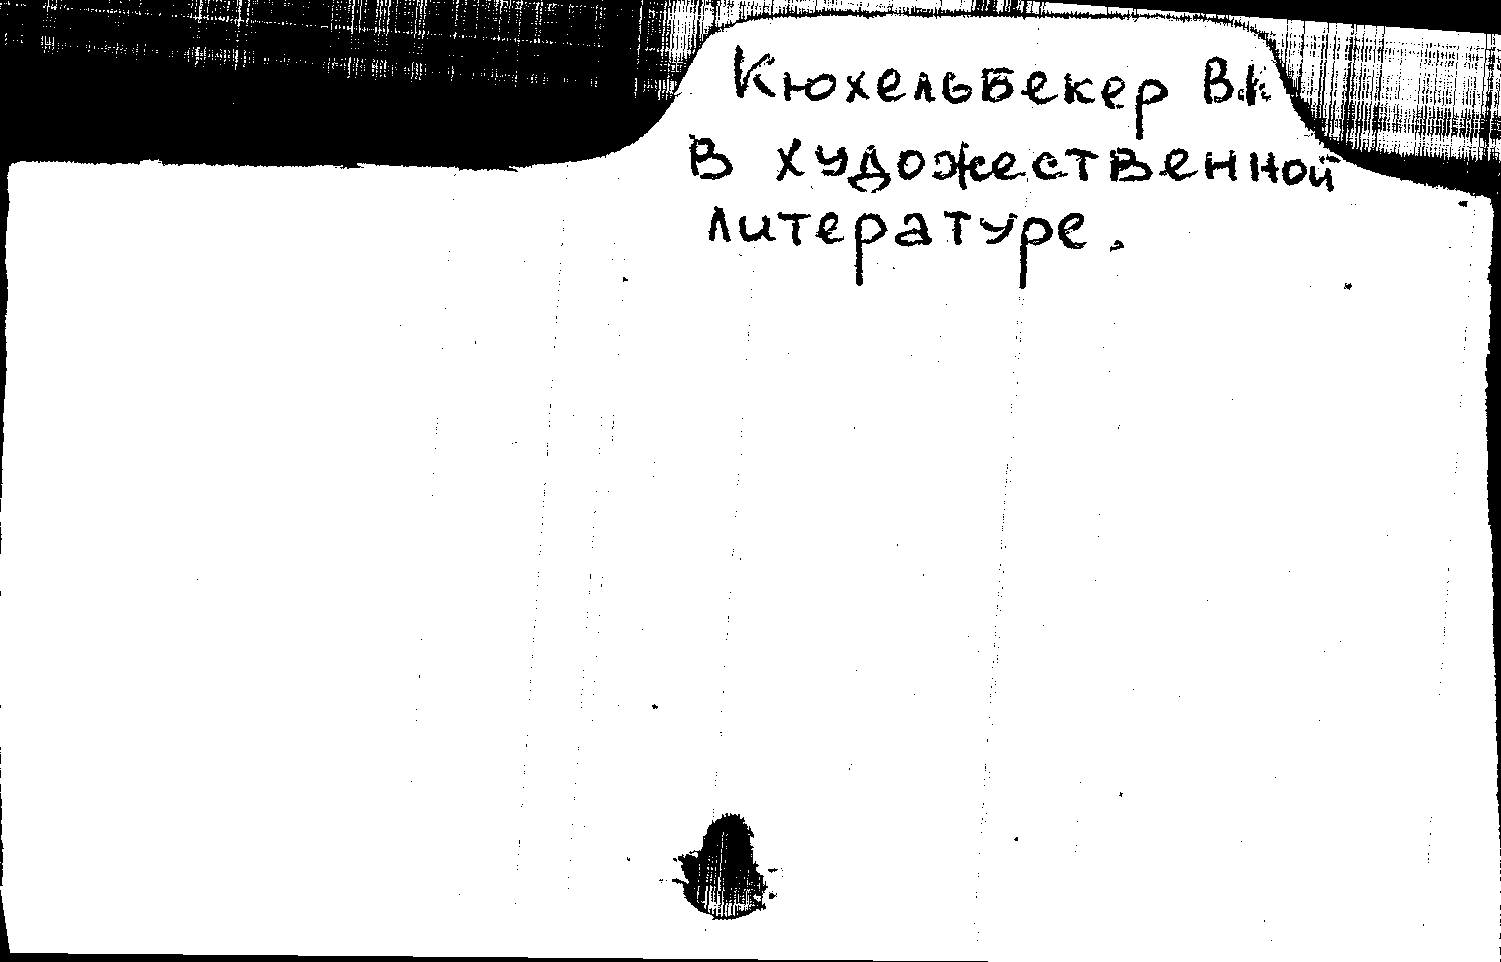 Кюхельбекер В.К
В художественной
литературе.